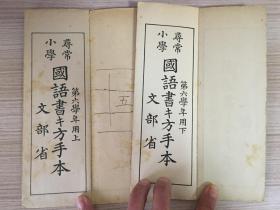 尋常
小學
國語書キ方手本
第六學年用上
文部省
五
尋常
小學
國語書キ方手本
第六學年用下
文部省